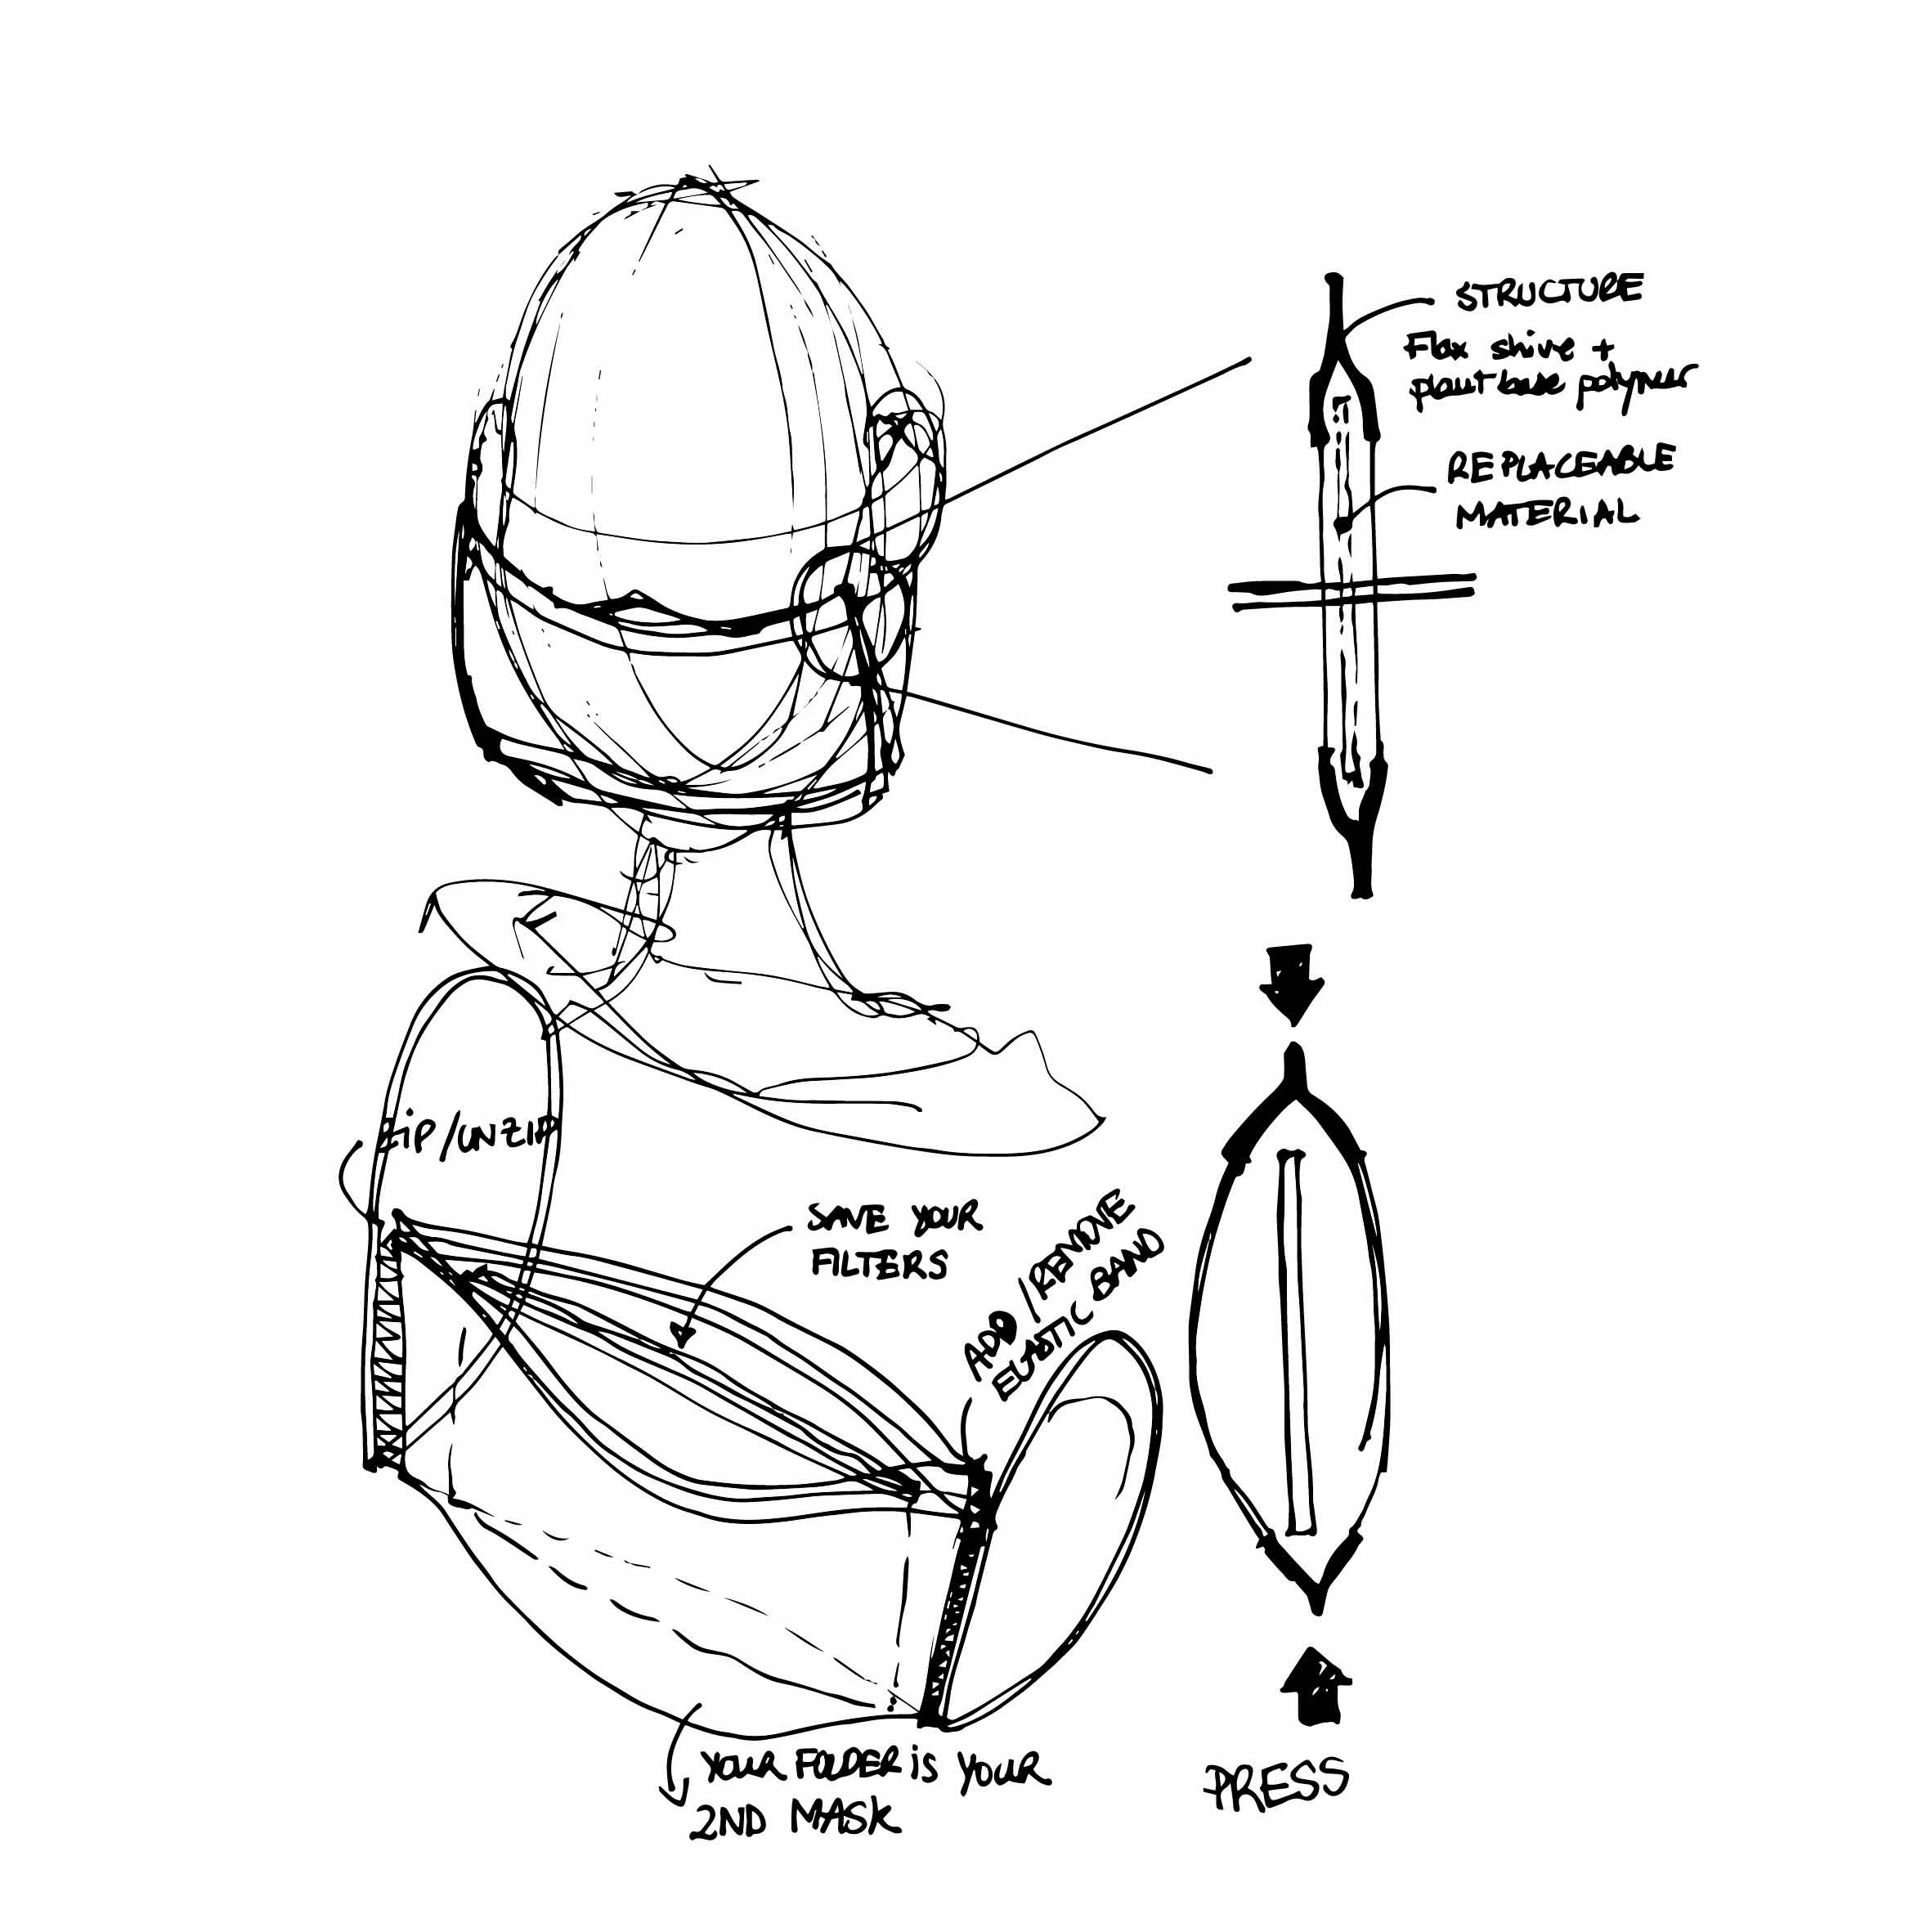 STRUCTURE
Flax shive +
plant base polymer
REPLACEABLE
MATERIAL
ZIP/UNZIP
SAVE YOUR
FILTERS
ADD/REMOVE
ELASTIC BAND
YOUR FODER is YOUR
2ND MASK
PRESS